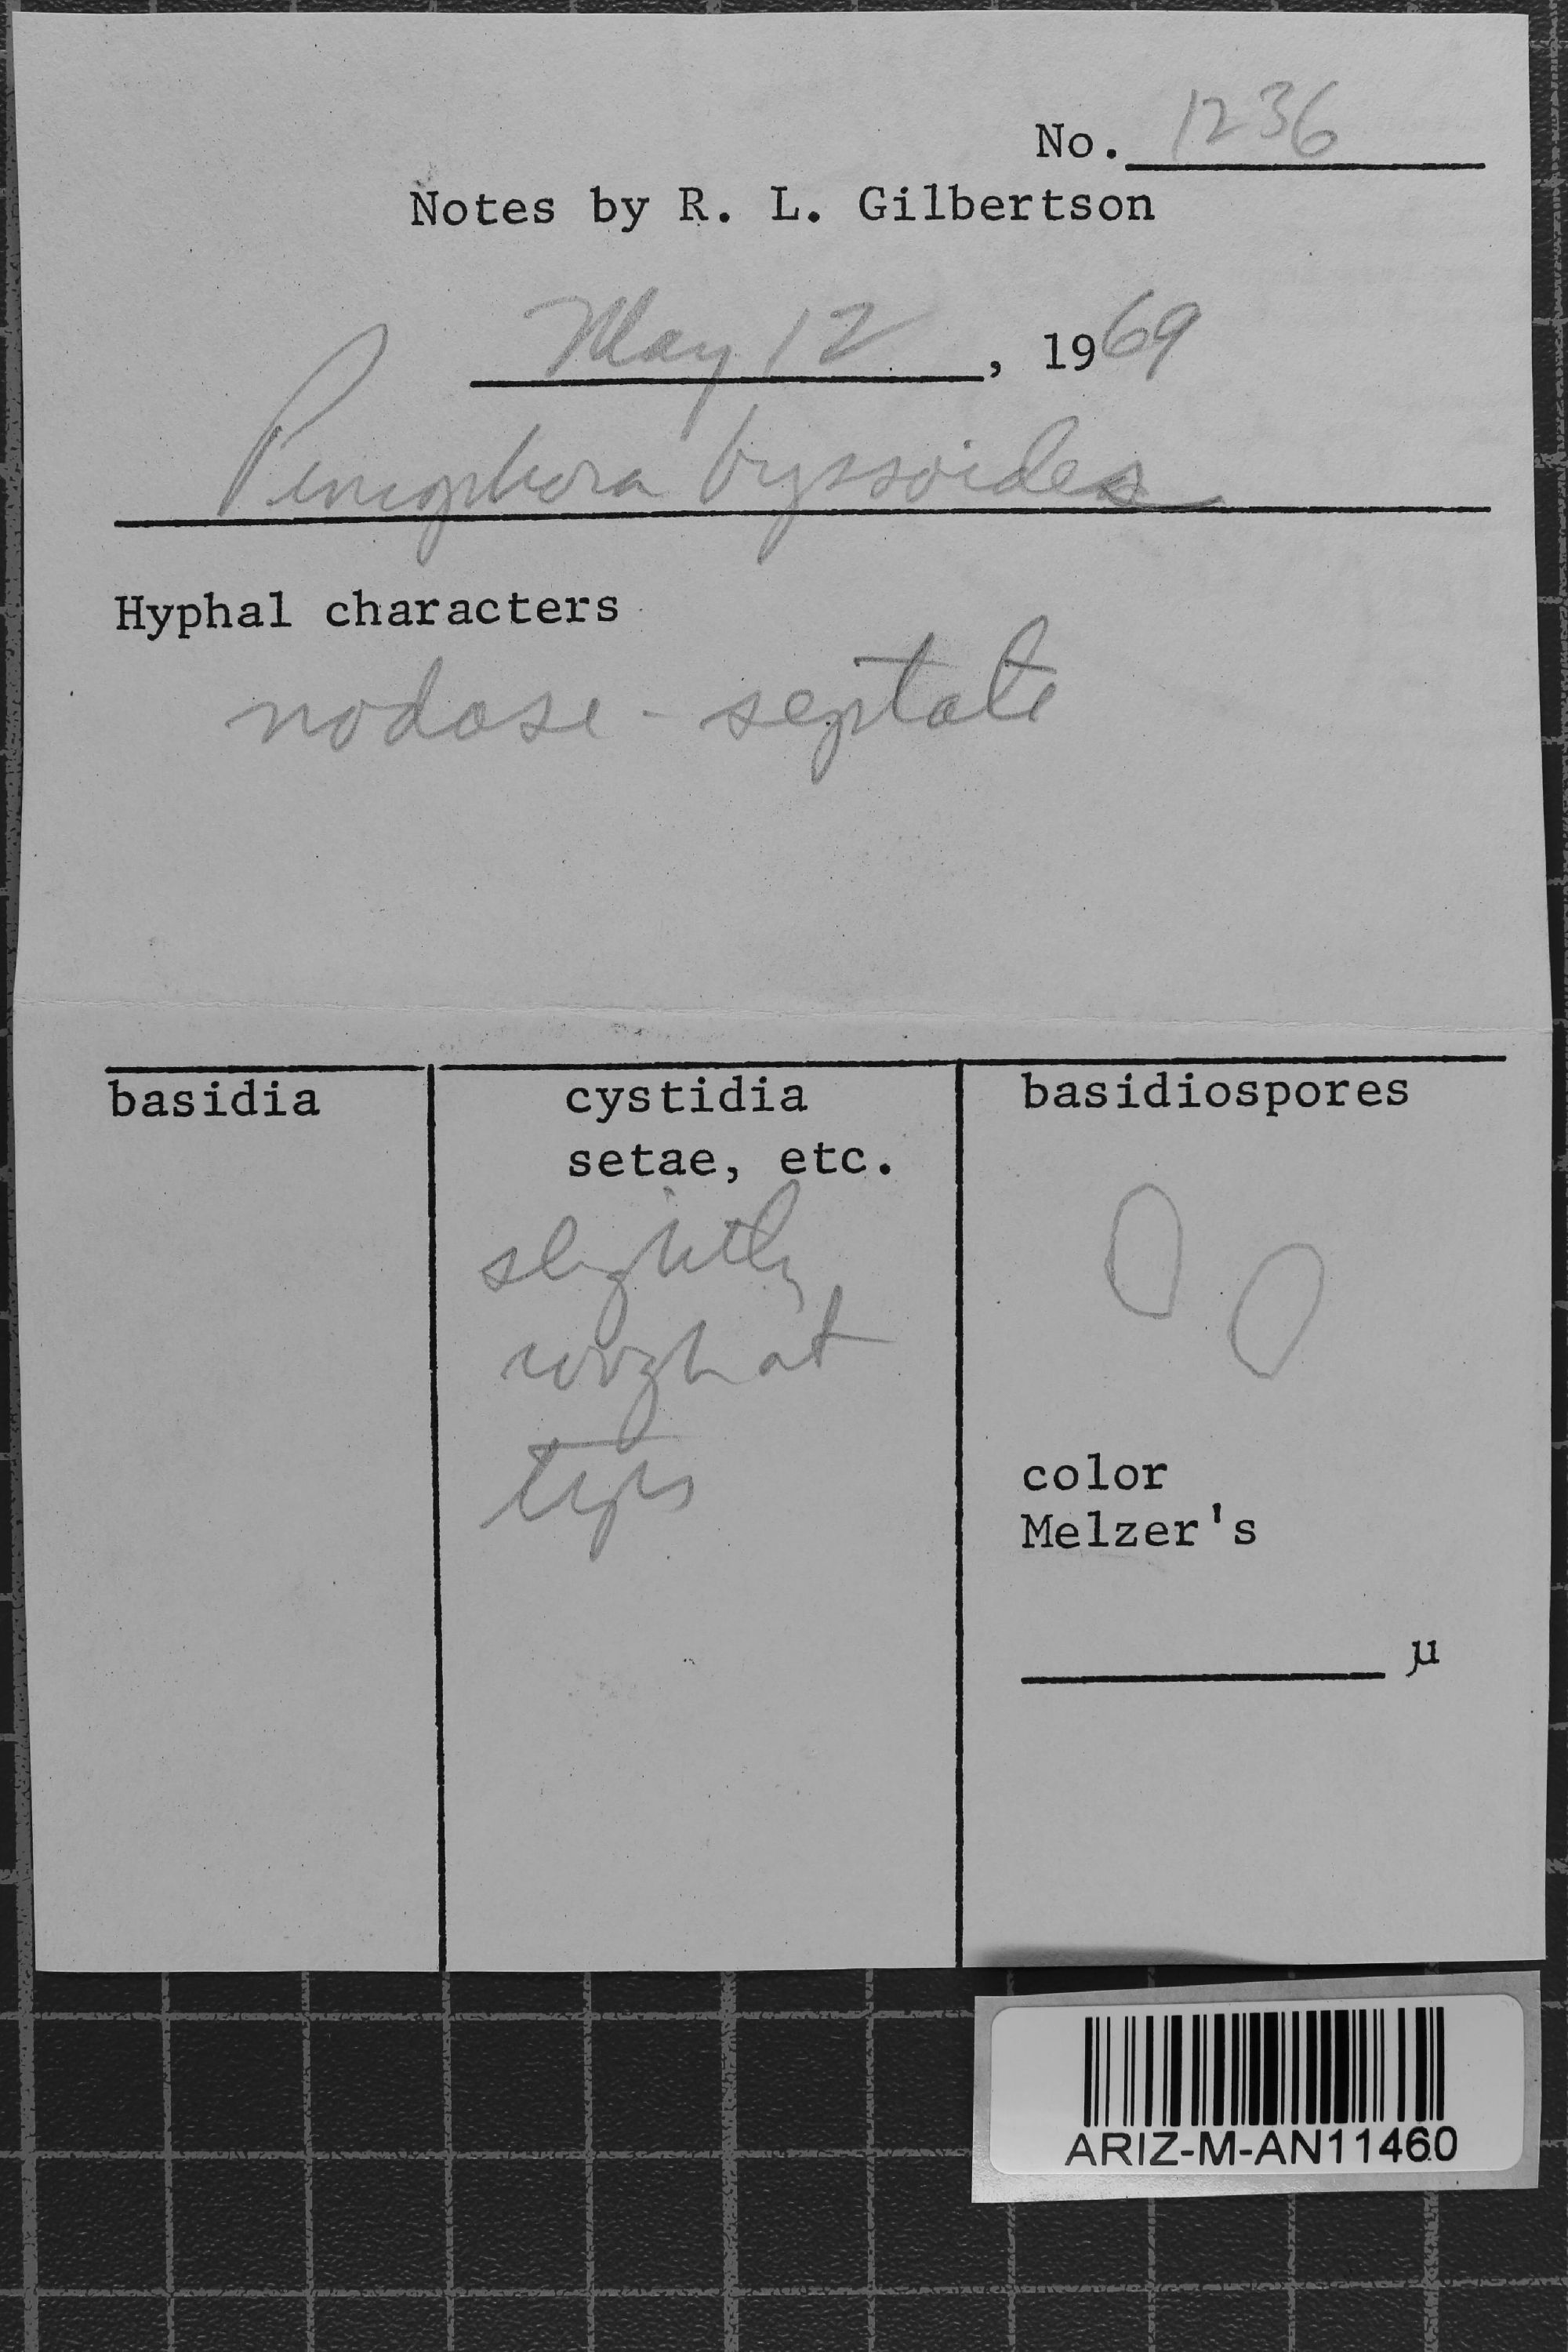 No. 1236
Notes by R. L. Gilbertson
May 12, 1969
Peniophora byssoides
Hyphal characters
nodose-septate
basidia
cystidia
setae, etc.
slightly
rough at
tips
basidiospores
color
Melzer's
µ
ARIZ-M-AN11460